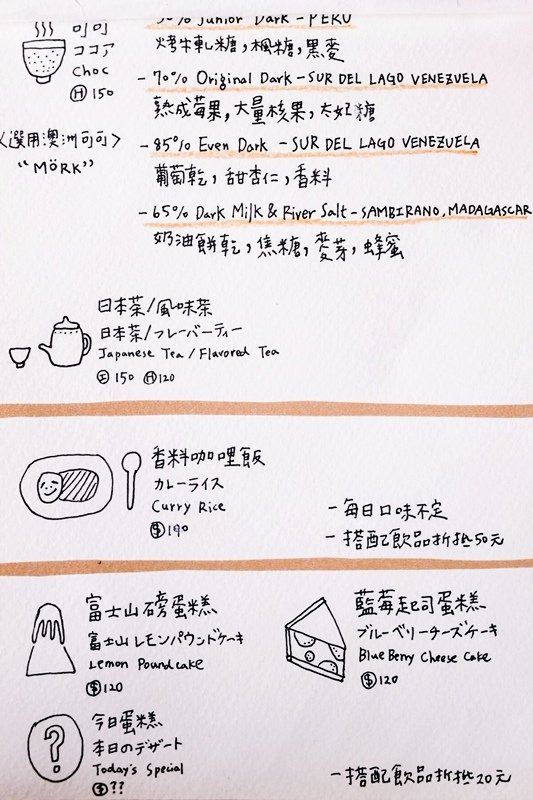 50% Junior Dark - PERU
可可
烤牛軋糖,楓糖,黑麥
ココア
Choc
Ⓗ 150
- 70% Original Dark - SUR DEL LAGO VENEZUELA
熟成莓果,大量核果,太妃糖
<選用澳洲可可>
"MÖRK"
- 85% Even Dark - SUR DEL LAGO VENEZUELA
葡萄乾,甜杏仁,香料
- 65% Dark Milk & River Salt - SAMBIRANO, MADAGASCAR
奶油餅乾,焦糖,麥芽,蜂蜜
日本茶/風味茶
日本茶/フレーバーティー
Japanese Tea / Flavored Tea
Ⓘ 150 Ⓗ 120
香料咖哩飯
カレーライス
Curry Rice
Ⓢ 190
- 每日口味不定
- 搭配飲品折抵50元
富士山磅蛋糕
富士山レモンパウンドケーキ
Lemon Poundcake
Ⓢ 120
藍莓起司蛋糕
ブルーベリーチーズケーキ
Blue Berry Cheese Cake
Ⓢ 120
今日蛋糕
本日のデザート
Today's Special
Ⓢ ??
- 搭配飲品折抵20元